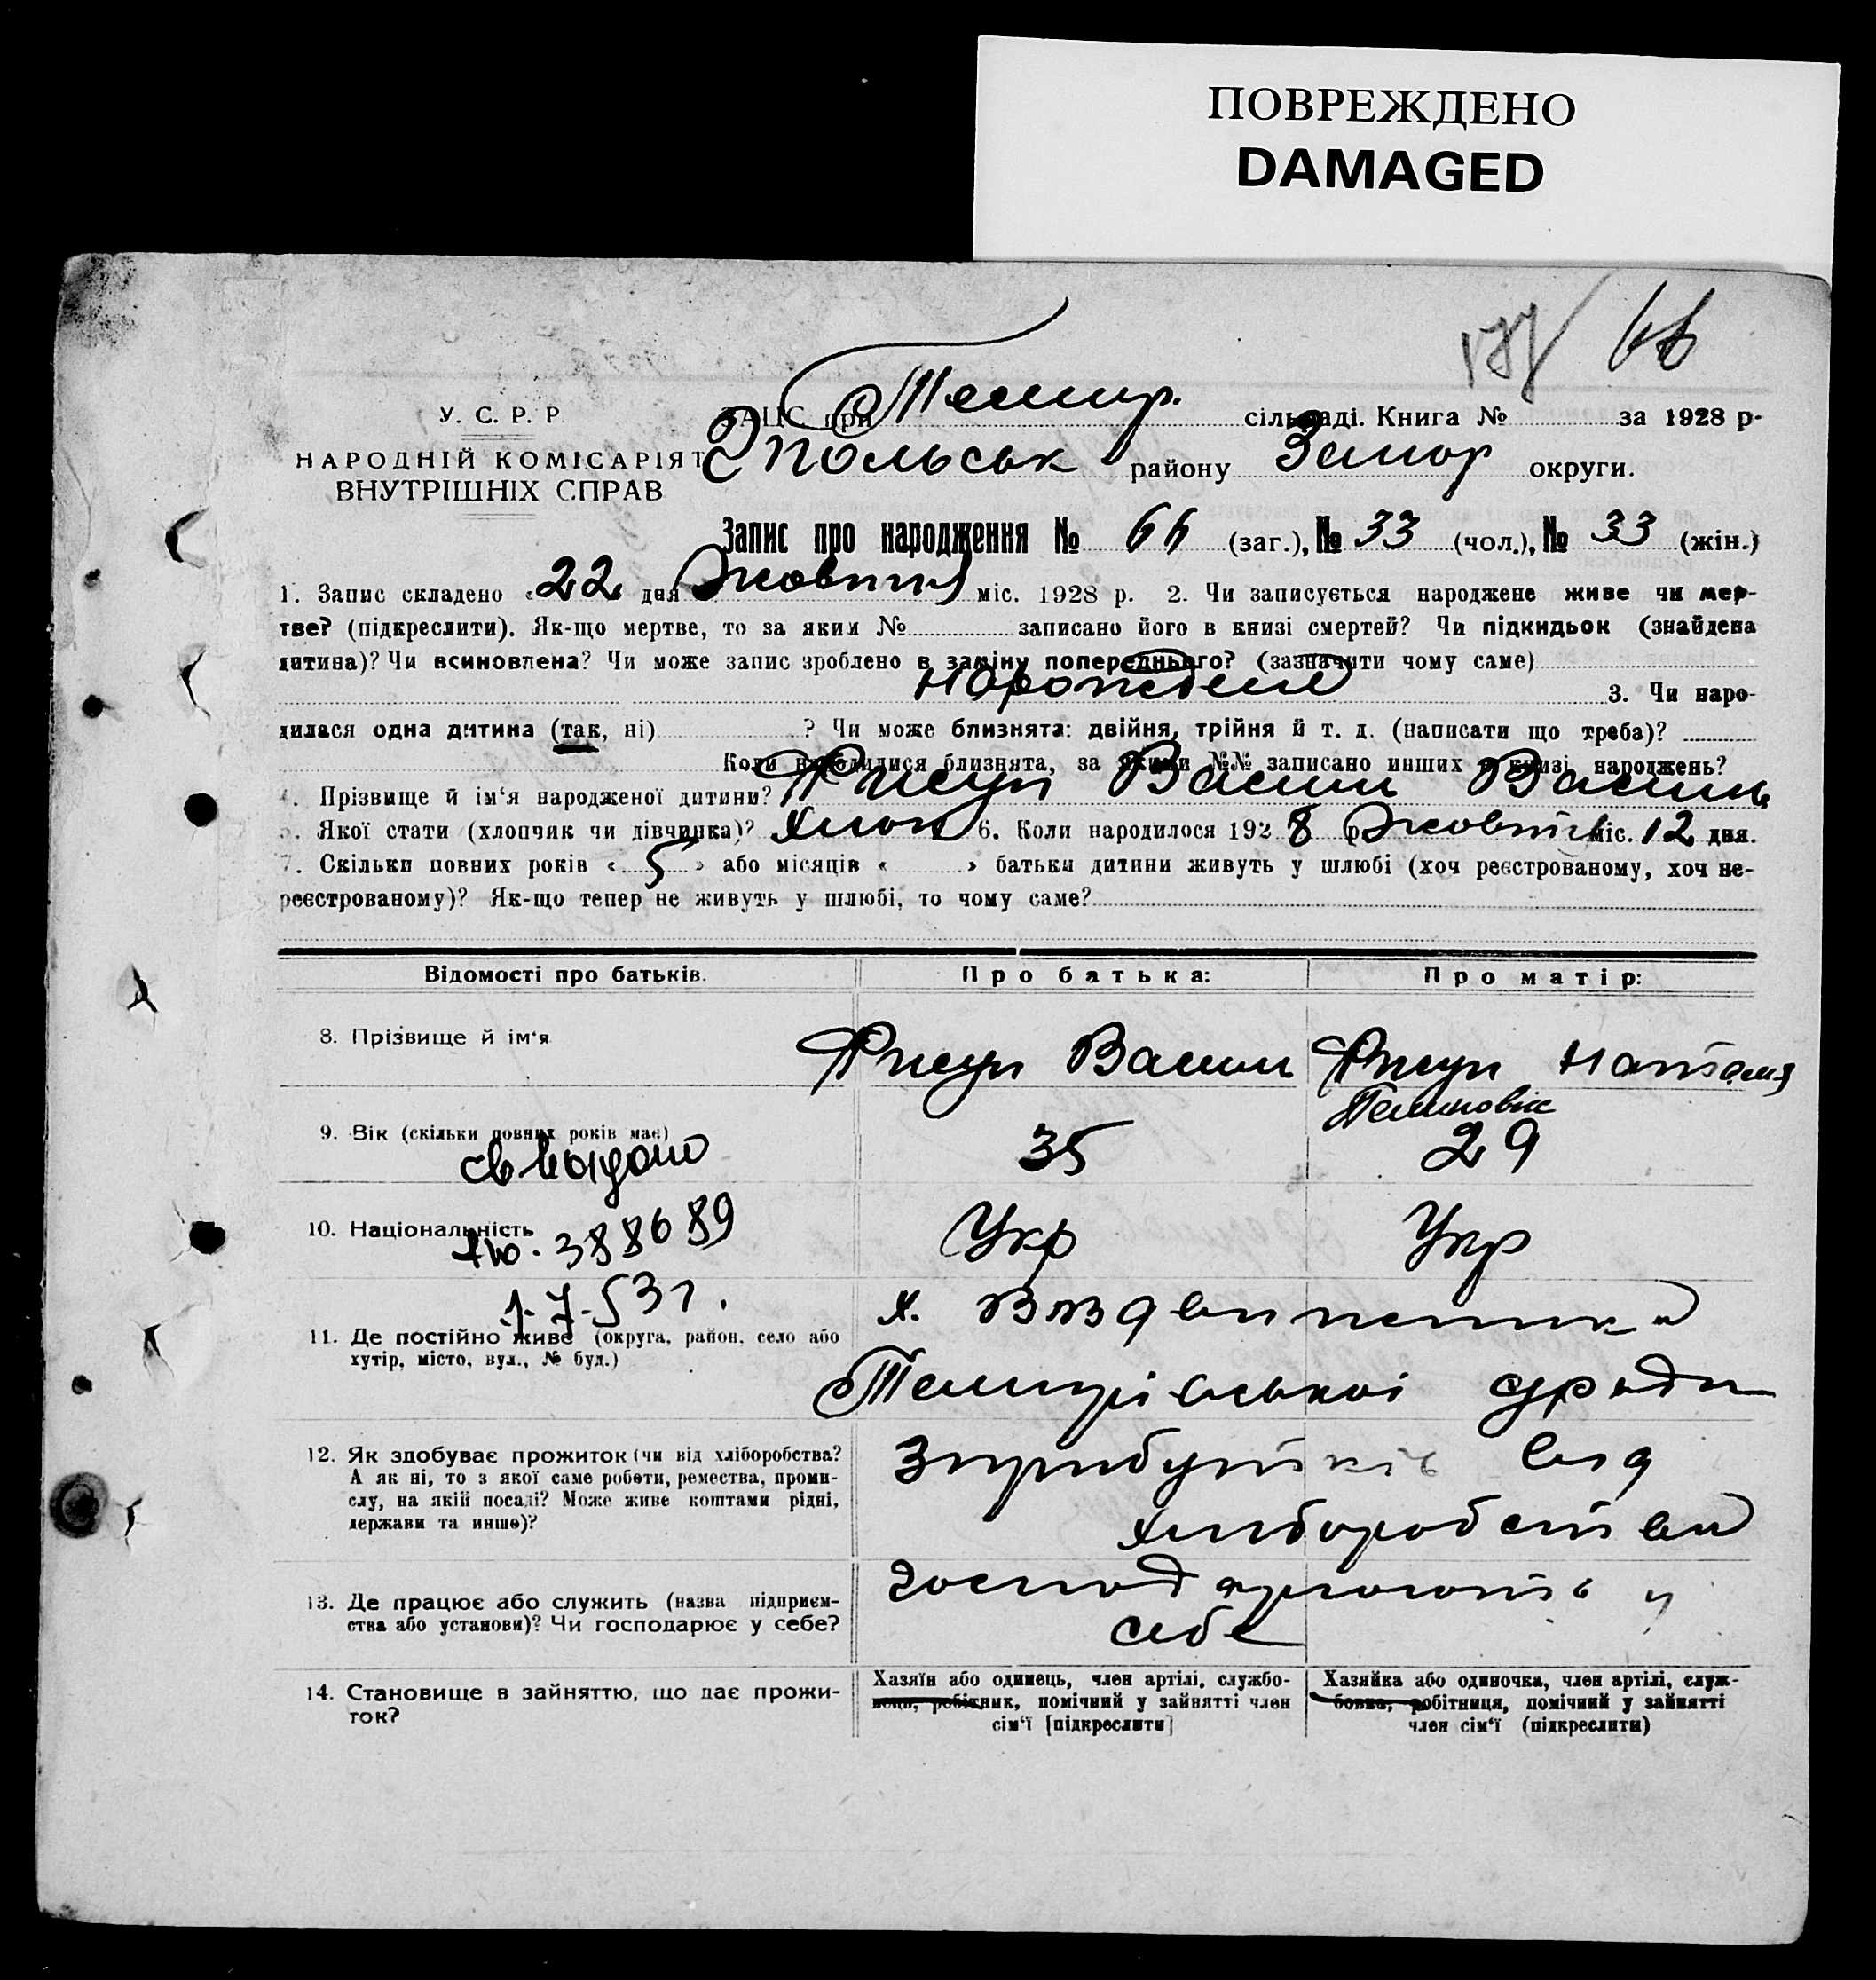 ПОВРЕЖДЕНО
DAMAGED
66
У. С. Р. Р.
НАРОДНІЙ КОМІСАРІЯТ
ВНУТРІШНІХ СПРАВ
ЗАПІС при Темир. сільраді. Книга № за 1928 р.
Г Польськ району Запор округи.
Запис про народження № 66 (заг.), № 33 (чол.), № 33 (жін.)
1. Запис складено «22 дня Жовтня міс. 1928 р. 2. Чи записується народжене живе чи мер-
тве? (підкреслити). Як-що мертве, то за яким № записано його в книзі смертей? Чи підкидьок (знайдена
дитина)? Чи всиновлена? Чи може запис зроблено в заміну попереднього? (зазначити чому саме)
3. Чи наро-
дилася одна дитина (так, ні) ? Чи може близнята: двійня, трійня й т. д. (написати що треба)?
Коли народилися близнята, за якими №№ записано инших в книзі народжень?
4. Прізвище й ім‘я народженої дитини? Рисун Васил Васил
5. Якої стати (хлопчик чи дівчинка)? Хлоп 6. Коли народилося 1928 р. Жовтня міс. 12 дня.
7. Скільки повних років «5» або місяців « » батьки дитини живуть у шлюбі (хоч реєстрованому, хоч не-
реєстрованому)? Як-що тепер не живуть у шлюбі, то чому саме?
Відомості про батьків. Про батька: Про матір:
8. Прізвище й ім‘я Рисун Васил Рисун Наталя
9. Вік (скільки повних років має) 35 29
10. Національність Укр Укр
3888689
1-7-53г.
11. Де постійно живе (округа, район, село або
хутір, місто, вул., № буд.)
х. Воздвиженка
Темирівської с/ради
12. Як здобуває прожиток (чи від хліборобства?
А як ні, то з якої саме роботи, ремества, проми-
слу, на якій посаді? Може живе коштами рідні,
держави та инше)?
З прибутків від
хліборобства
13. Де працює або служить (назва підприєм-
ства або установи)? Чи господарює у себе?
Господарюють у
себе
14. Становище в зайняттю, що дає прожи-
ток?
Хазяїн або одинець, член артілі, службо-
вець, робітник, помічний у зайнятті член
сім‘ї [підкреслити]
Хазяйка або одиночка, член артілі, служ-
бовка, робітниця, помічний у зайнятті
член сім‘ї (підкреслити)